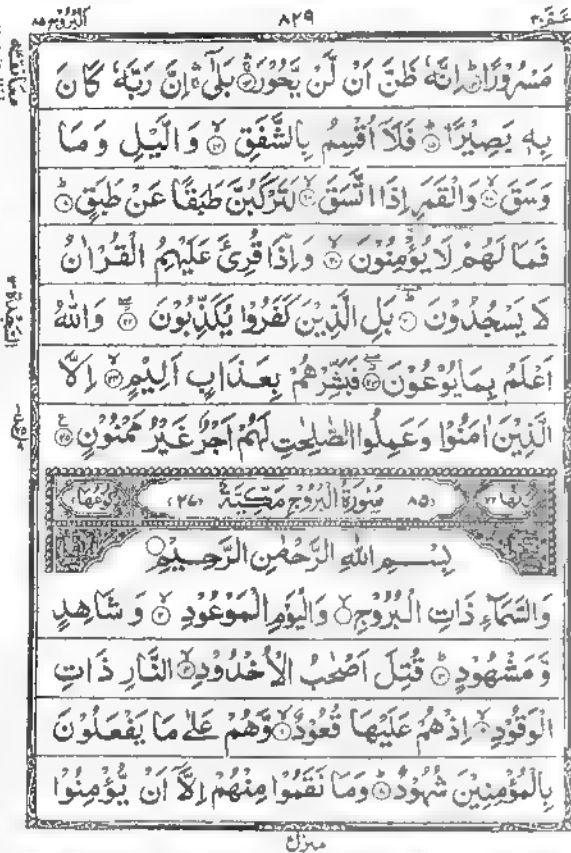 عَمَّ ٣٠
٨٢٩
اَلْبُرُوْج ٨٥
مَسْرُوْرًا ﴿١٣﴾ اِنَّهٗ ظَنَّ اَنْ لَّنْ يَّحُوْرَ ﴿١٤﴾ بَلٰٓى ۛۚ اِنَّ رَبَّهٗ كَانَ
بِهٖ بَصِيْرًا ﴿١٥﴾ فَلَاۤ اُقْسِمُ بِالشَّفَقِ ﴿١٦﴾ وَالَّيْلِ وَمَا
وَسَقَ ﴿١٧﴾ وَالْقَمَرِ اِذَا اتَّسَقَ ﴿١٨﴾ لَتَرْكَبُنَّ طَبَقًا عَنْ طَبَقٍ ﴿١٩﴾
فَمَا لَهُمْ لَا يُؤْمِنُوْنَ ﴿٢٠﴾ وَاِذَا قُرِئَ عَلَيْهِمُ الْقُرْاٰنُ
لَا يَسْجُدُوْنَ ﴿٢١﴾ بَلِ الَّذِيْنَ كَفَرُوْا يُكَذِّبُوْنَ ﴿٢٢﴾ وَاللّٰهُ
اَعْلَمُ بِمَا يُوْعُوْنَ ﴿٢٣﴾ فَبَشِّرْهُمْ بِعَذَابٍ اَلِيْمٍ ﴿٢٤﴾ اِلَّا
الَّذِيْنَ اٰمَنُوْا وَعَمِلُوا الصّٰلِحٰتِ لَهُمْ اَجْرٌ غَيْرُ مَمْنُوْنٍ ﴿٢٥﴾
﴿٨٥﴾ سُوْرَةُ الْبُرُوْجِ مَكِّيَّةٌ ﴿٢٧﴾
بِسْمِ اللّٰهِ الرَّحْمٰنِ الرَّحِيْمِ
وَالسَّمَآءِ ذَاتِ الْبُرُوْجِ ﴿١﴾ وَالْيَوْمِ الْمَوْعُوْدِ ﴿٢﴾ وَشَاهِدٍ
وَّمَشْهُوْدٍ ﴿٣﴾ قُتِلَ اَصْحٰبُ الْاُخْدُوْدِ ﴿٤﴾ النَّارِ ذَاتِ
الْوَقُوْدِ ﴿٥﴾ اِذْ هُمْ عَلَيْهَا قُعُوْدٌ ﴿٦﴾ وَّهُمْ عَلٰى مَا يَفْعَلُوْنَ
بِالْمُؤْمِنِيْنَ شُهُوْدٌ ﴿٧﴾ وَمَا نَقَمُوْا مِنْهُمْ اِلَّاۤ اَنْ يُّؤْمِنُوْا
منزل